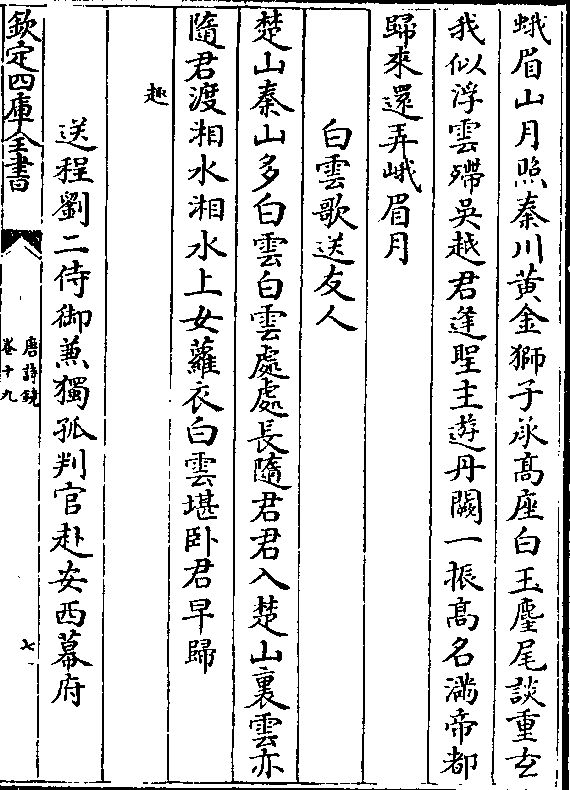 蛾眉山月照秦川黄金獅子承髙座白玉麈尾談重玄
我似浮雲殢吳越君逢聖主遊丹闕一振髙名滿帝都
歸來還弄峨眉月
白雲歌送友人
楚山秦山多白雲白雲處處長隨君君入楚山裏雲亦
隨君渡湘水湘水上女蘿衣白雲堪卧君早歸
趣
送程劉二侍御兼獨孤判官赴安西幕府
欽定四庫全書
唐詩鏡
卷十九
七